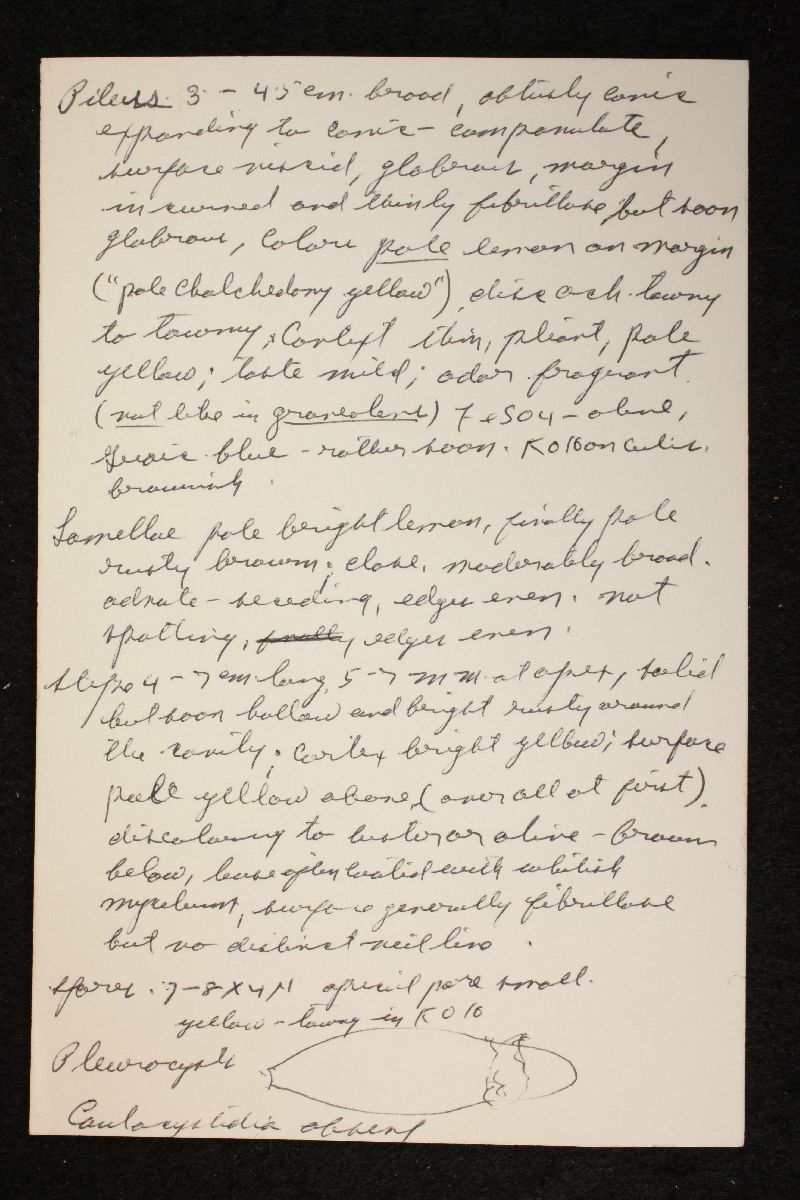 Pileus 3 - 4.5 cm. broad, obtusely conic
expanding to conic - campanulate,
surface viscid, glabrous, margin
incurved and thinly fibrillose, but soon
glabrous, color pale lemon on margin
("pale chalchedony yellow") disc och. tawny
to tawny; Context thin, pliant, pale
yellow; taste mild; odor fragrant
(not like in graveolens) FeSO4 - olive,
Guaic blue - rather soon. KOH on cutis.
brownish.
Lamellae pale bright lemon, finally pale
rusty brown; close, moderately broad.
adnate - seceding, edges even. not
spotting, edges even.
stipe 4 - 7 cm long, 5 - 7 mm. at apex, solid
but soon hollow and bright rusty around
the cavity; cortex bright yellow; surface
pale yellow above, (over all at first)
discoloring to or olive - brown
below, base often coated with whitish
mycelium, surface generally fibrillose
but no distinct veil line.
Spores. 7-8 X 4 µ apical pore small.
yellow - tawny in KOH
Pleurocysts
Caulocystidia absent